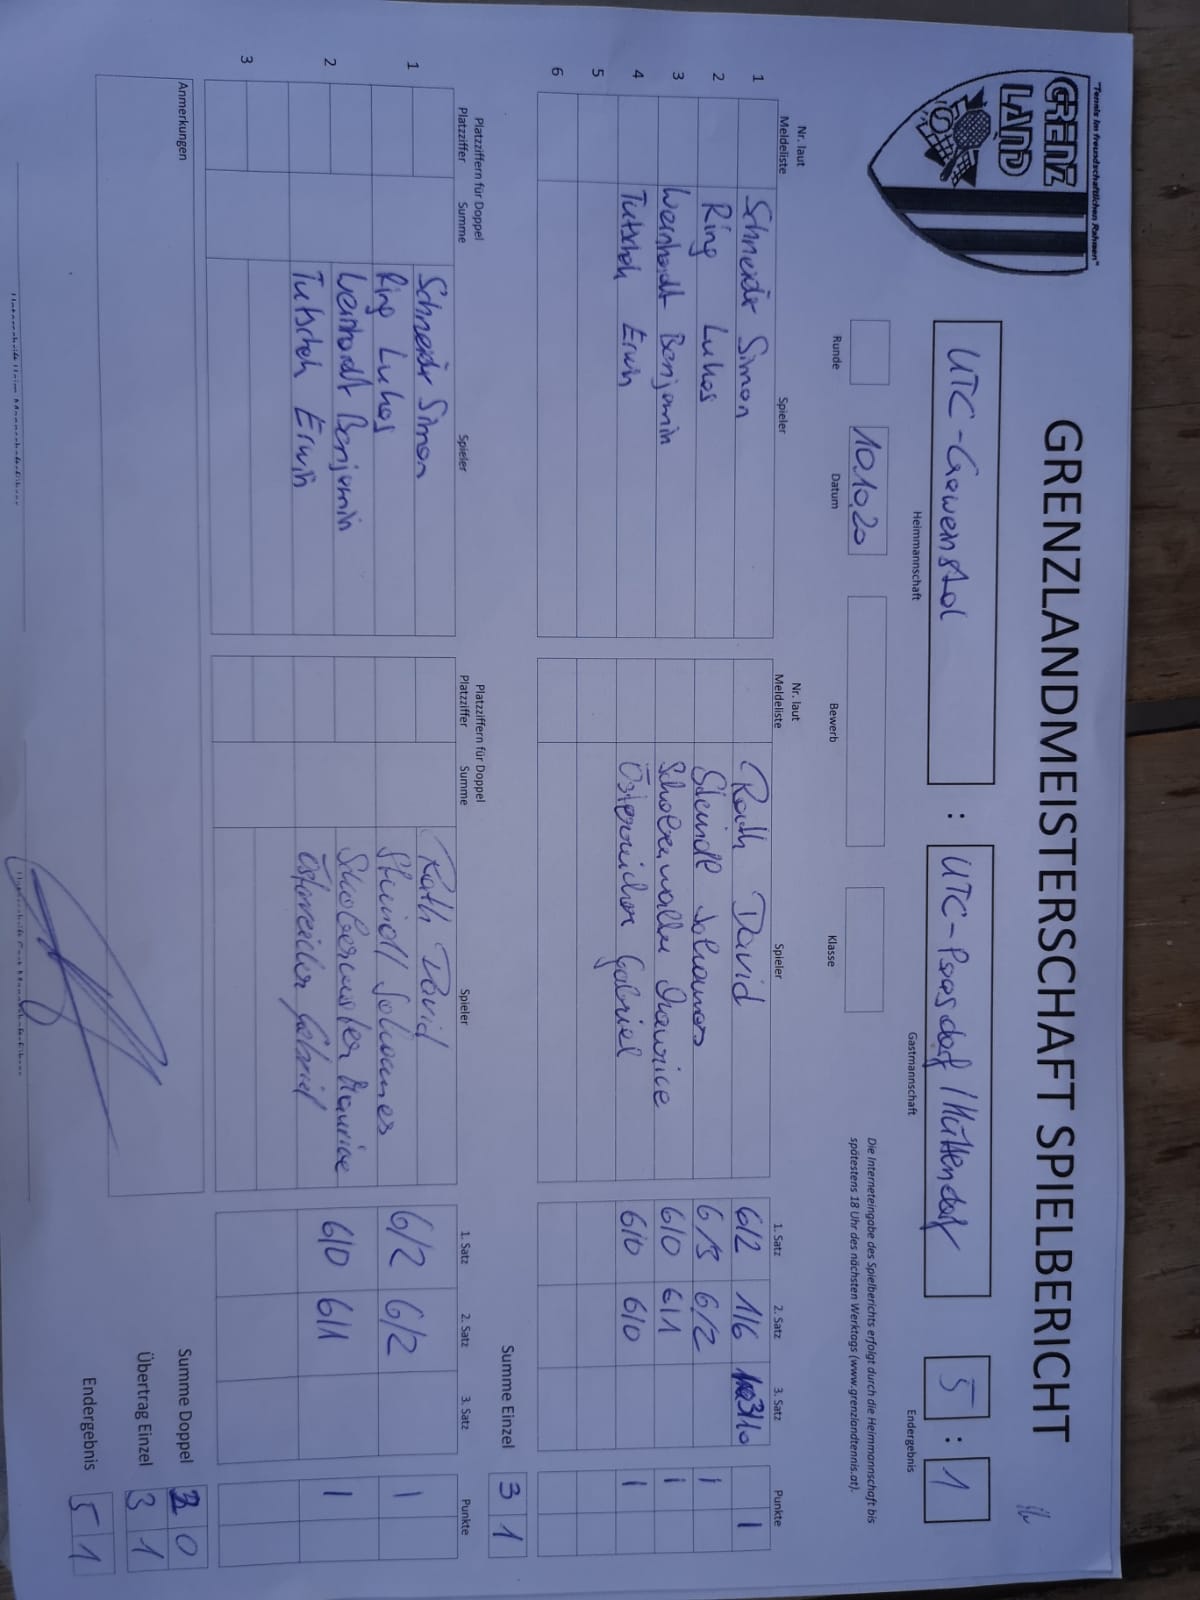 "Tennis im freundschaftlichen Rahmen"
GRENZ
LAND
GRENZLANDMEISTERSCHAFT SPIELBERICHT
UTC-Gaweinstal : UTC-Paasdorf/Hüttendorf 5 : 1
Heimmannschaft Gastmannschaft Endergebnis
10.10.20
Runde Datum Bewerb Klasse
Die Interneteingabe des Spielberichts erfolgt durch die Heimmannschaft bis
spätestens 18 Uhr des nächsten Werktags (www.grenzlandtennis.at).
Nr. laut Meldeliste Spieler Nr. laut Meldeliste Spieler 1. Satz 2. Satz 3. Satz Punkte
1 Schneider Simon Rath David 6/2 1/6 3/10 1
2 Ring Lukas Steindl Johannes 6/3 6/2 1
3 Weinhardt Benjamin Maurice 6/0 6/1 1
4 Tutschek Erwin Österreicher Gabriel 6/0 6/0 1
5
6
Summe Einzel 3 1
Platzziffern für Doppel
Platzziffer Summe Spieler
Platzziffern für Doppel
Platzziffer Summe Spieler 1. Satz 2. Satz 3. Satz Punkte
1 Schneider Simon Rath David
Ring Lukas Steindl Johannes 6/2 6/2 1
2 Weinhardt Benjamin Maurice
Tutschek Erwin Österreicher Gabriel 6/0 6/1 1
3
Anmerkungen
Summe Doppel 2 0
Übertrag Einzel 3 1
Endergebnis 5 1